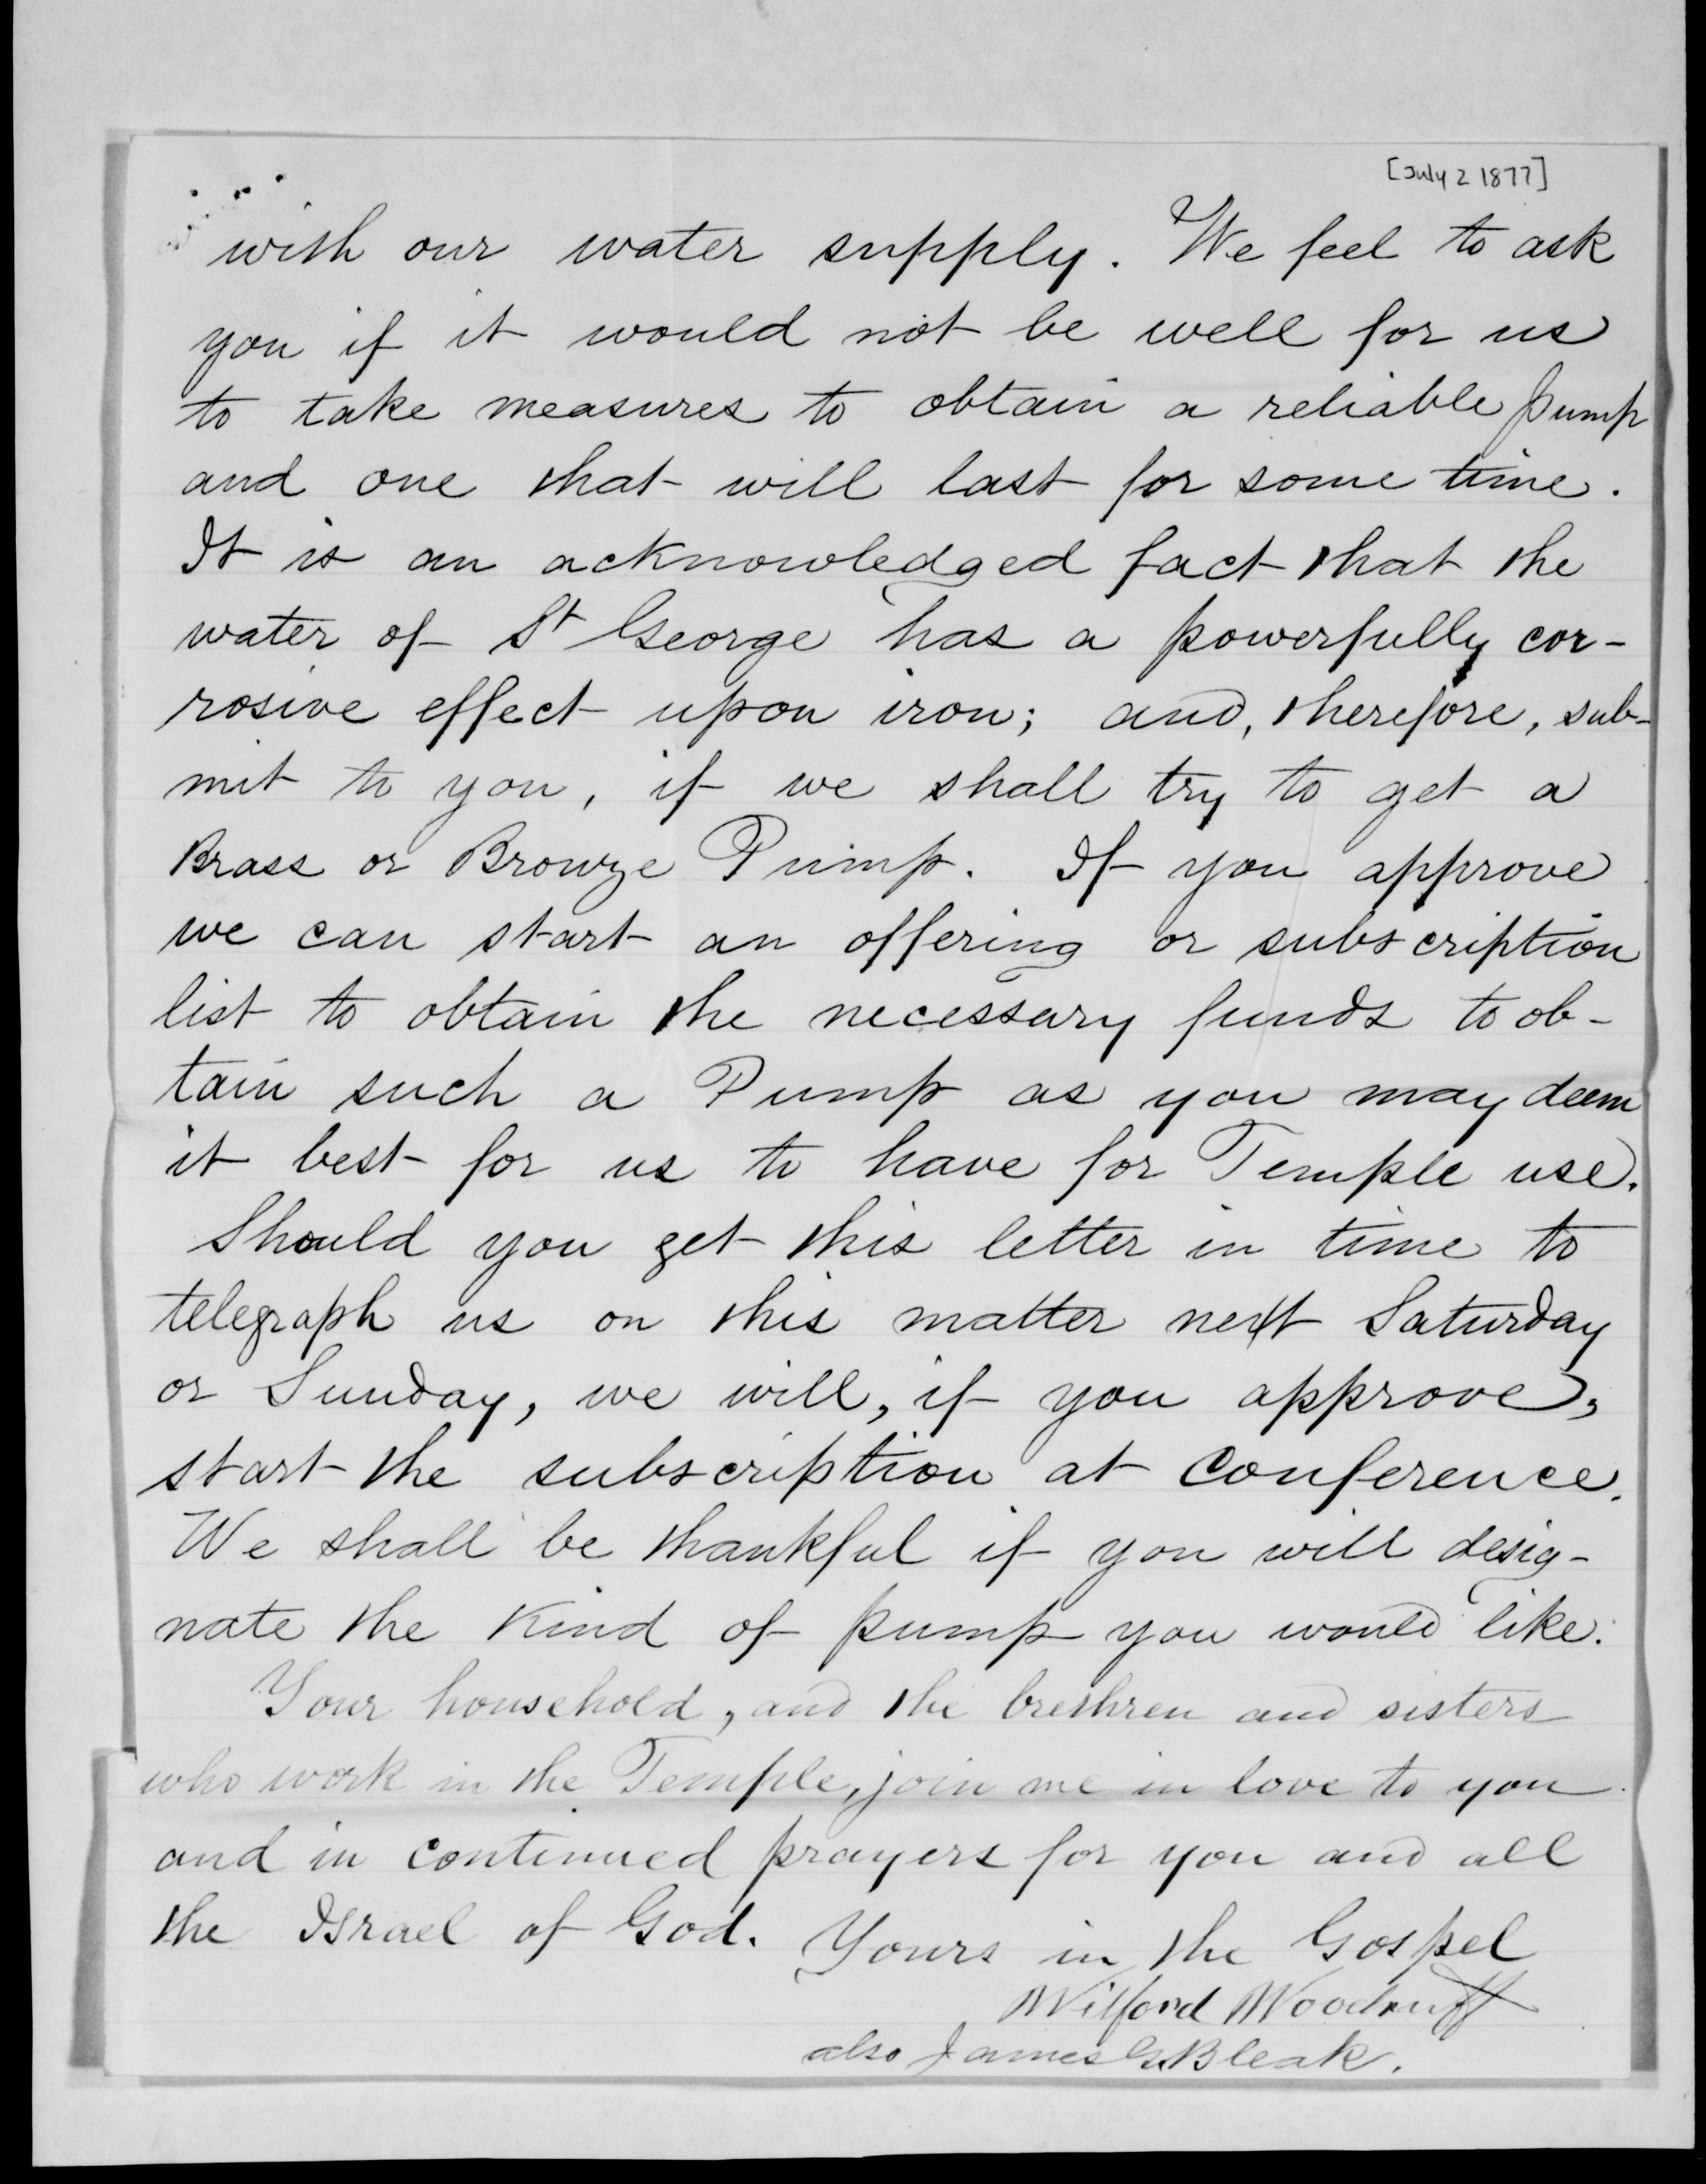 [July 2 1877]
with our water supply. We feel to ask
you if it would not be well for us
to take measures to obtain a reliable pump
and one that will last for some time.
It is an acknowledged fact that the
water of St George has a powerfully cor-
rosive effect upon iron; and, therefore, sub-
mit to you, if we shall try to get a
Brass or Bronze Pump. If you approve
we can start an offering or subscription
list to obtain the necessary funds to ob-
tain such a Pump as you may deem
it best for us to have for Temple use.
Should you get this letter in time to
telegraph us on this matter next Saturday
or Sunday, we will, if you approve,
start the subscription at Conference.
We shall be thankful if you will desig-
nate the kind of pump you would like.
Your household, and the brethren and sisters
who work in the Temple, join me in love to you
and in continued prayers for you and all
the Israel of God. Yours in the Gospel
Wilford Woodruff
also James G. Bleak.